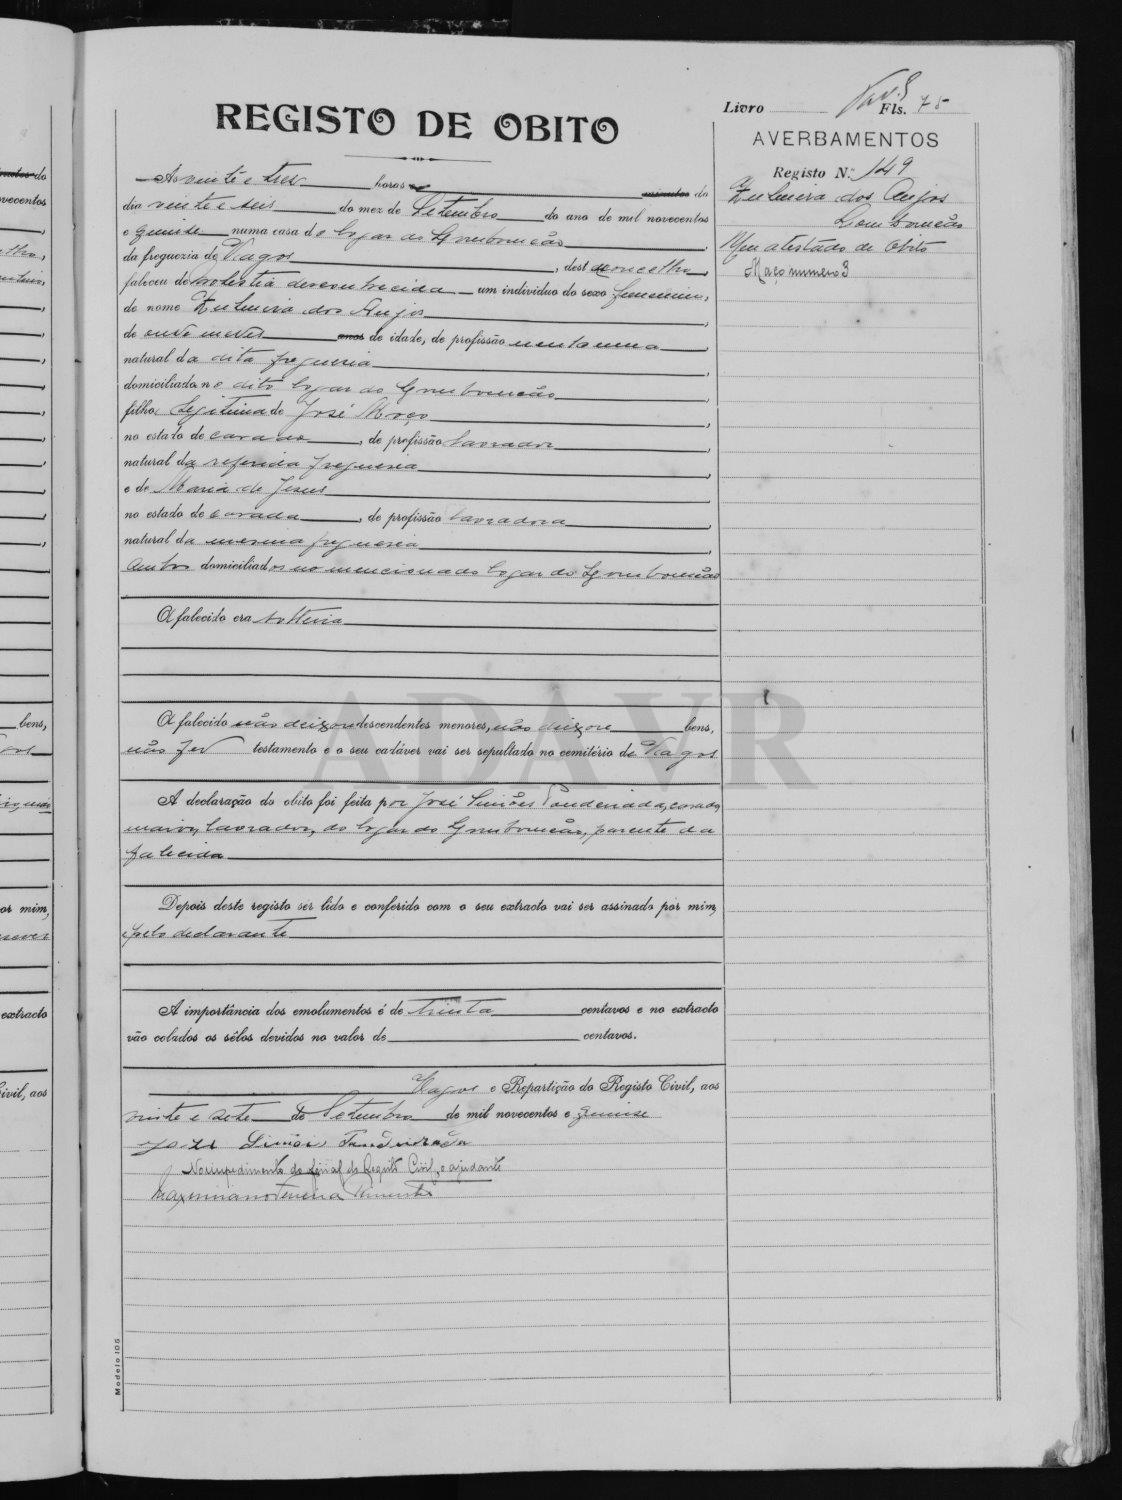 Livro Fls. 75
REGISTO DE OBITO
AVERBAMENTOS
Registo N.º 149
Zulmira dos Anjos
Lombomeão
Um atestado de obito
Maço numero 3
Ás vinte e tres horas e minutos do
dia vinte e seis do mez de Setembro do ano de mil novecentos
e quinze numa casa do logar do Lombomeão,
da freguezia de Vagos, deste concelho,
faleceu de molestia desconhecida um individuo do sexo femenino,
de nome Zulmira dos Anjos,
de onze mezes anos de idade, de profissão nenhuma,
natural da dita freguesia,
domiciliada no dito logar do Lombomeão,
filha legitima de José Moço,
no estado de casado, de profissão lavrador,
natural da referida freguesia,
e de Maria de Jesus
no estado de casada, de profissão lavradora,
natural da mesma freguesia,
ambos domiciliados no mencionado logar do Lombomeão
A falecida era solteira
A falecida não deixou descendentes menores, não deixou bens,
não fez testamento e o seu cadáver vai ser sepultado no cemitério de Vagos
A declaração do obito foi feita por José Simões casado,
maior, lavrador, do logar do Lombomeão, parente da
falecida
Depois deste registo ser lido e conferido com o seu extracto vai ser assinado por mim,
e pelo declarante
A importância dos emolumentos é de trinta centavos e no extracto
vão colados os sêlos devidos no valor de centavos.
Vagos e Repartição do Registo Civil, aos
vinte e sete de Setembro de mil novecentos e quinze
José Simões
No impedimento do oficial do Registo Civil, o ajudante
Maximiano Ferreira
Modelo 105
ADAVR
do
novecentos
bens,
por mim,
extracto
Civil, aos